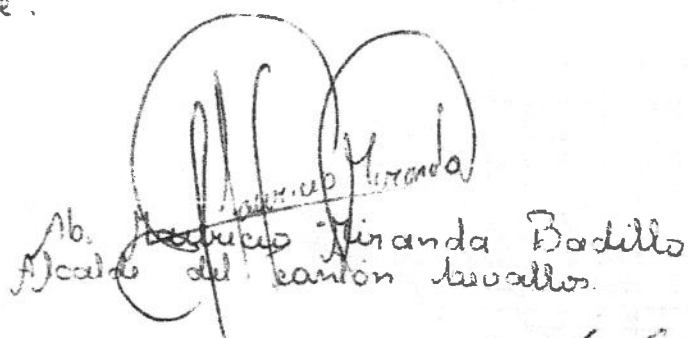 Mauricio Miranda
Ab. Mauricio Miranda Badillo
Alcalde del cantón Cevallos.